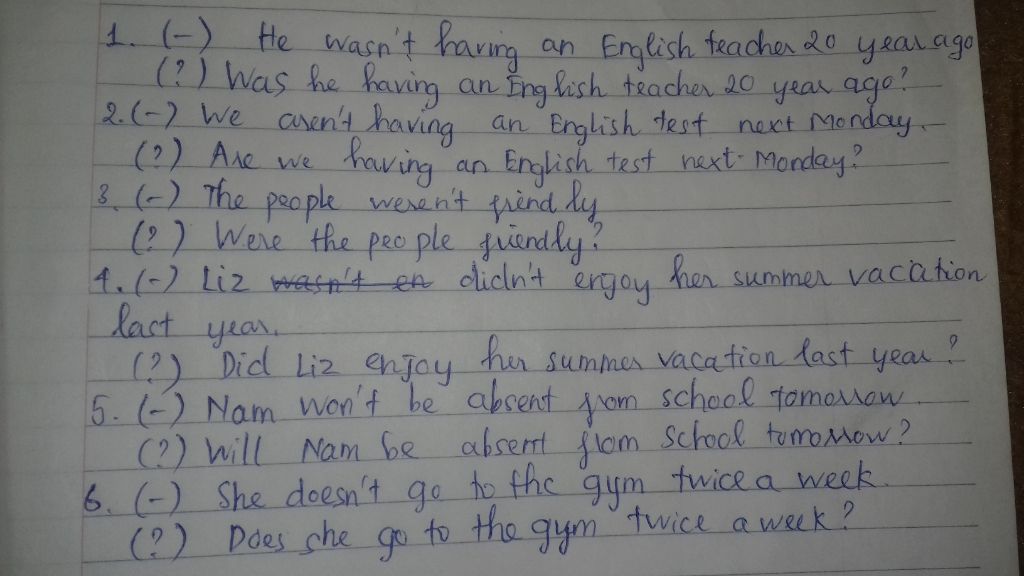 1. (-) He wasn't having an English teacher 20 year ago
(?) Was he having an English teacher 20 year ago?
2. (-) We aren't having an English test next Monday.
(?) Are we having an English test next Monday?
3. (-) The people weren't friendly
(?) Were the people friendly?
4. (-) Liz wasn't en didn't enjoy her summer vacation
last year.
(?) Did Liz enjoy her summer vacation last year?
5. (-) Nam won't be absent from school tomorrow.
(?) Will Nam be absent from school tomorrow?
6. (-) She doesn't go to the gym twice a week.
(?) Does she go to the gym twice a week?